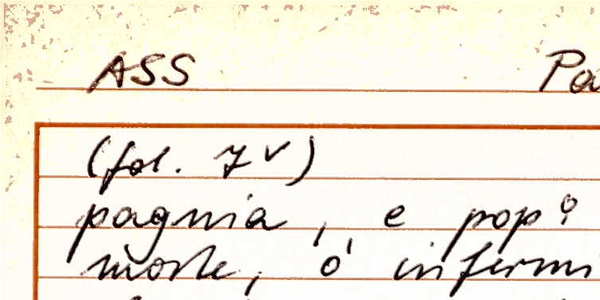 ASS Pa
(fol. 7v)
pagnia, e pop°
morte, ó infermi